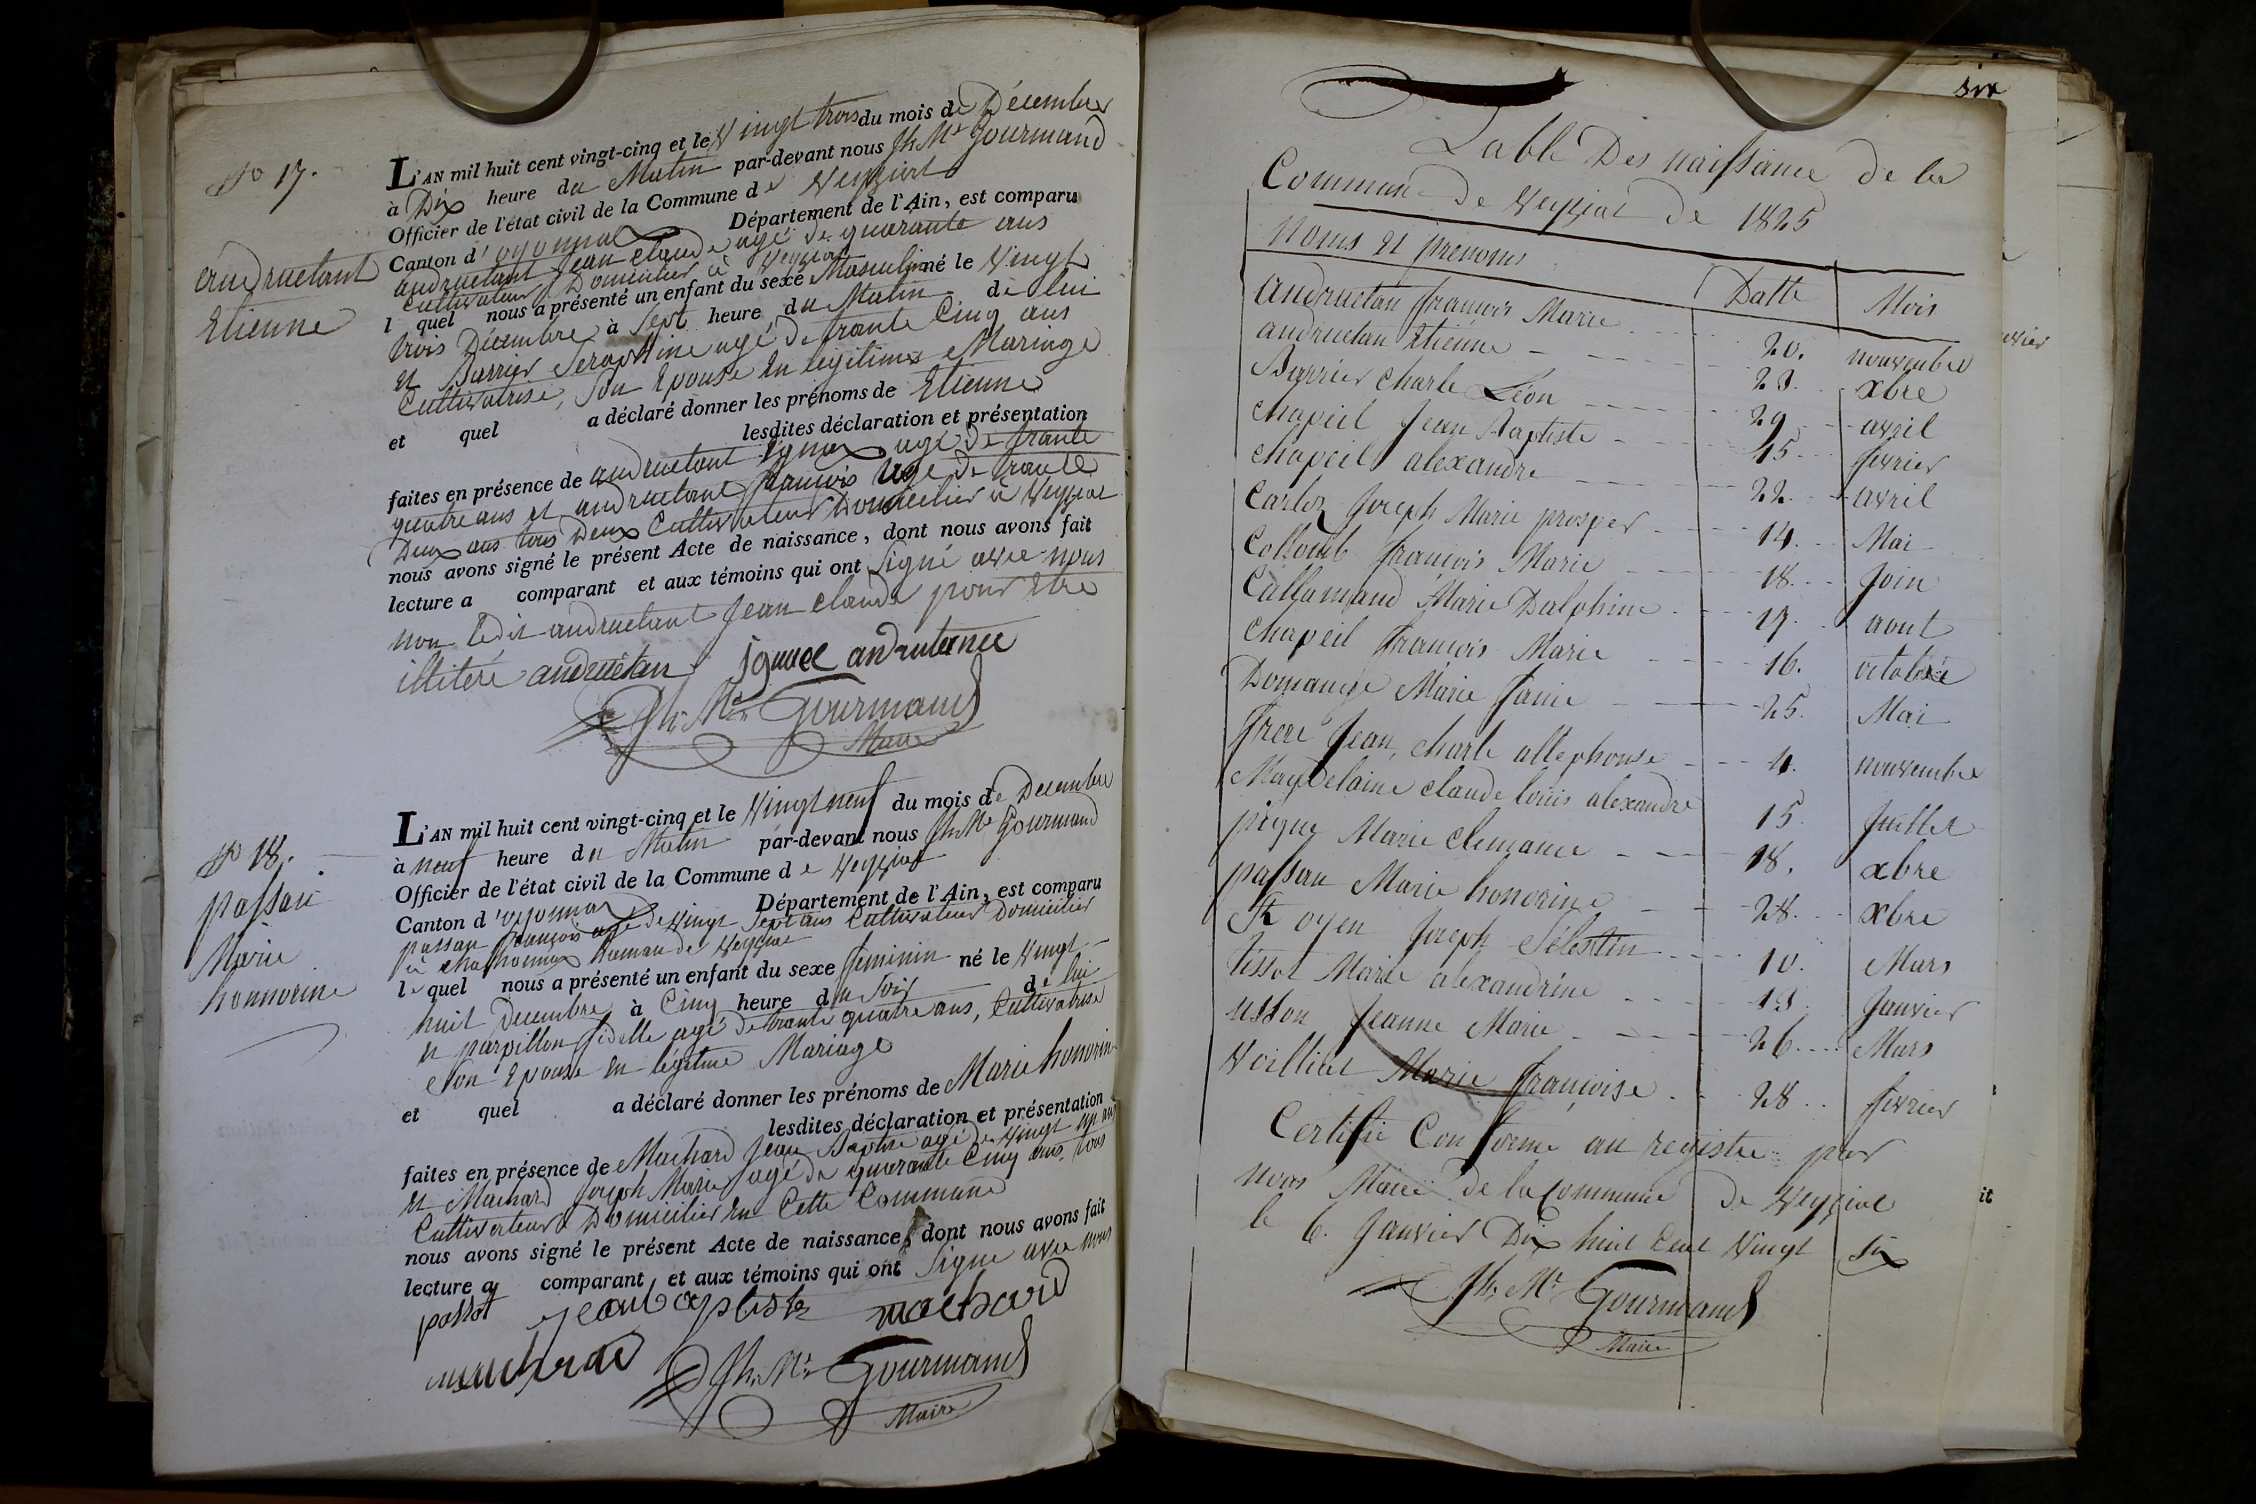 N° 17.
andruetant
Etienne
L'AN mil huit cent vingt-cinq et le Vingt trois du mois de Décembre
à Dix heure du Matin par-devant nous Jh. Mie Gourmand
Officier de l'état civil de la Commune de Veyziat
Canton d'oyonnax Département de l'Ain, est comparu
andruetant Jean Claude agé de quarante ans
Cultivateur Domicilier à Veyziat
l quel nous a présenté un enfant du sexe Masculin né le Vingt
trois Décembre à Sept heure du Matin de lui
et Barrier Seraphine agé de trante Cinq ans
Cultivatrise, Son Epouse en legitimes Mariage
et quel a déclaré donner les prénoms de Etienne
lesdites déclaration et présentation
faites en présence de andruetant Ignax agé de trante
quatre ans et andruetant françois agé de trante
Deux ans tous Deux Cultivateur Domicilier à Veyziat
nous avons signé le présent Acte de naissance, dont nous avons fait
lecture a comparant et aux témoins qui ont Signé avec nous
non ledit andruetant Jean claude pour etre
illiteré andruetan ignace andrutance
Jh. Mie Gourmand
Maire
N° 18.
passau
Marie
honnorine
L'AN mil huit cent vingt-cinq et le Vingt neuf du mois de Decembre
à neuf heure du Matin par-devant nous Jh. Mie Gourmand
Officier de l'état civil de la Commune de Veyziat
Canton d'oyonnax Département de l'Ain, est comparu
passau françois agé de Vingt Sept ans Cultivateur Domicilier
à chathonnax hamau de Veyziat
le quel nous a présenté un enfant du sexe feminin né le Vingt
huit Decembre à Cinq heure du Soir de lui
et parpillon fidelle agé de trante quatre ans, Cultivatrise
Son Epouse en légitime Mariage
et quel a déclaré donner les prénoms de Marie honorine
lesdites déclaration et présentation
faites en présence de Machard Jean Baptise agé de Vingt sep ans
et Machard Joseph Marie agé de quarante Cinq ans, tous
Cultivateur Domicilier en Cette Commune
nous avons signé le présent Acte de naissance, dont nous avons fait
lecture au comparant et aux témoins qui ont Signe avec nous
passot jean baptiste machard
machard Jh. Mie Gourmand
Maire
six
Table Des naissance de la
Commune de Veyziat de 1825
Noms et prenoms Datte Mois
andruetan françois Marie 20. nouvembre
andruetan Etienne 23. xbre
Barrier charle Léon 29 avril
chapeil Jean Baptiste 15 fevrier
chapeil alexandre 22 avril
Carloz Joseph Marie prosper 14. Mai
Collomb françois Marie 18. Join
Callamand Marie Dalphine 17. aout
chapeil françois Marie 16. octobre
Domange Marie Janie 25. Mai
frere Jean, charle allephonse 4. nouvembre
Maydelaine claude louis alexandre 15 Juillet
piquy Marie Clemance 18. xbre
passau Marie honorine 28. xbre
St oyen Joseph Sélestin 10. Mars
tissot Marie alexandrine 13 Janvier
usson Jeanne Marie 26 Mars
Voilliat Marie françoise 28 fevrier
Certifié Conforme au registre par
nous Maire de la commune de Veyziat
le 6. Janvier Dix huit Cent Vingt Six
Jh. Mie Gourmand
Maire